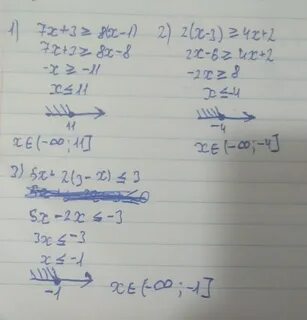 1) 7x+3 ≥ 8(x-1)
7x+3 ≥ 8x-8
-x ≥ -11
x ≤ 11
11
x ∈ (-∞; 11]
2) 2(x-3) ≥ 4x+2
2x-6 ≥ 4x+2
-2x ≥ 8
x ≤ -4
-4
x ∈ (-∞; -4]
3) 5x+2(3-x) ≤ 3
5x-2x ≤ -3
3x ≤ -3
x ≤ -1
-1
x ∈ (-∞; -1]